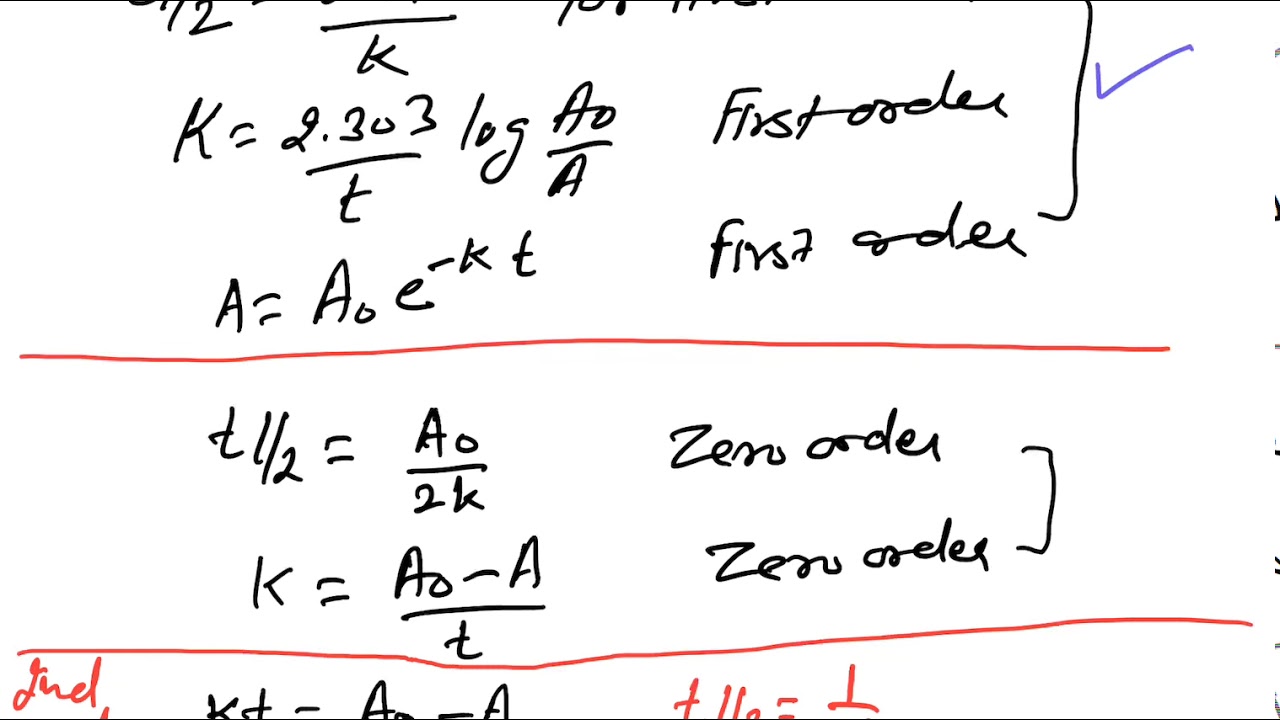 K
K = 2.303/t log A0/A First order
A = A0 e^-kt first order
t1/2 = A0/2k Zero order
K = A0-A/t Zero order
2nd Kt = A0-A t1/2 = 1